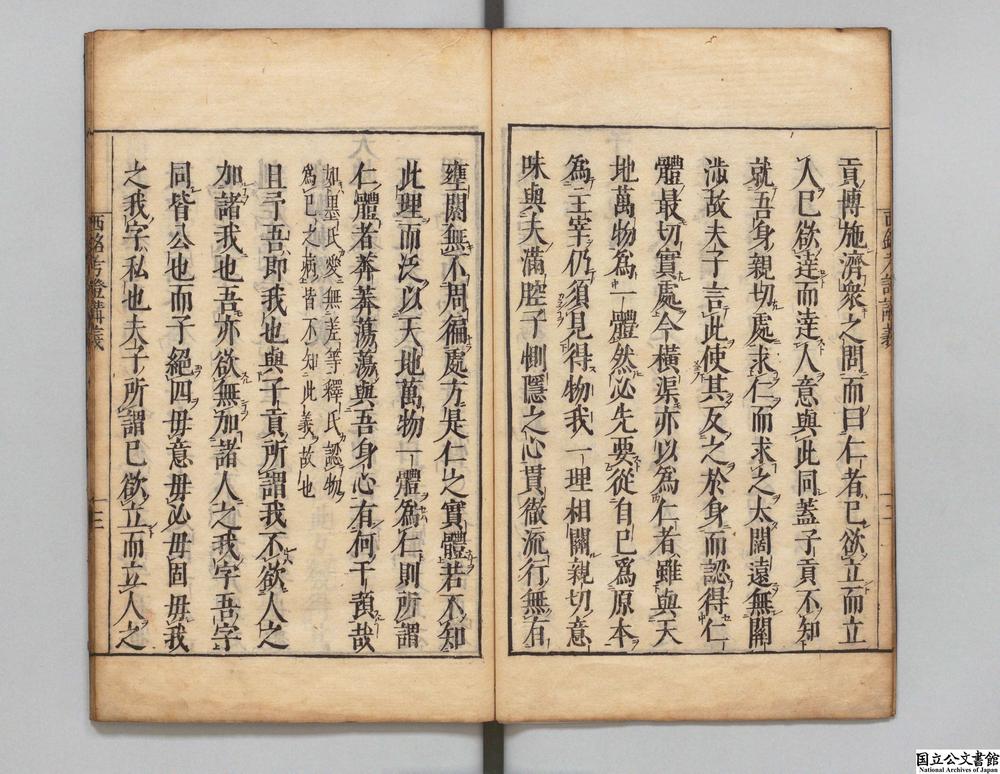 貢博施濟衆之問而曰仁者已欲立而立
人已欲逹而逹人意與此同蓋子貢不知
就吾身親切處求仁而求之太闊遠無關
涉故夫子言此使其反之於身而認得仁
體最切實處今橫渠亦以為仁者雖與天
地萬物為一體然必先要從自已爲原本
為主宰仍須見得物我一理相關親切意
味與夫滿腔子惻隱之心貫徹流行無有
壅閼無不周徧處方是仁之實體若不知
此理而泛以天地萬物一體為仁則所謂
仁體者莽莽蕩蕩與吾身心有何干預哉
如墨氏愛無差等釋氏認物
爲已之病皆不知此義故也
且予吾即我也與子貢所謂我不欲人之
加諸我也吾亦欲無加諸人之我字吾字
同皆公也而子絕四毋意毋必毋固毋我
之我字私也夫子所謂已欲立而立人之
西銘考證講義
三
国立公文書館
National Archives of Japan